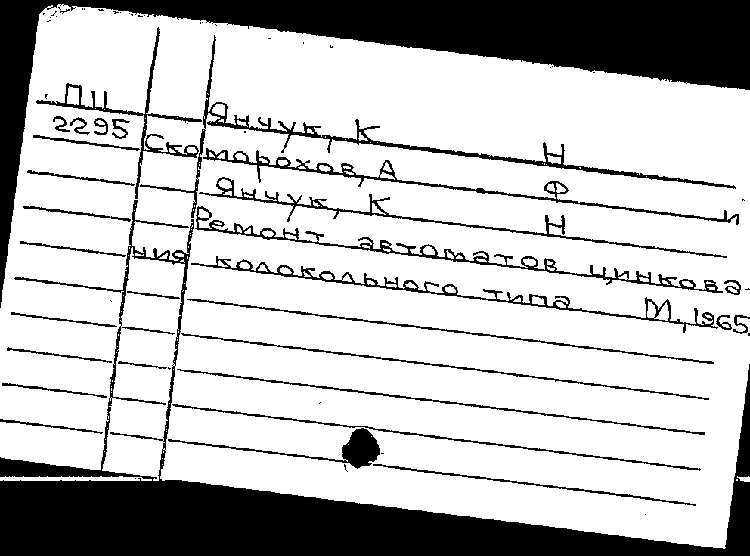 П11 Янчук, К Н
2295 Скоморохов, А Ф и
Янчук, К Н
Ремонт автоматов цинкова-
ния колокольного типа М., 1965